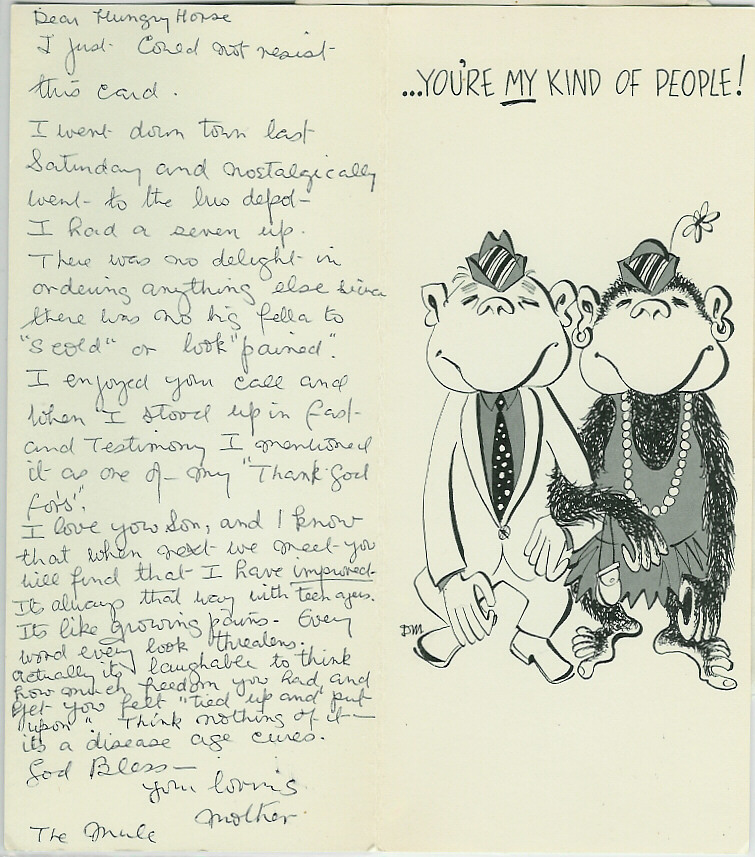 Dear Hungry Horse
I just Could not resist
this card.
I went down town last
Saturday and nostalgically
went to the bus depot
I had a seven up.
There was no delight in
ordering anything else since
there was no big fella to
"scold" or look "pained".
I enjoyed your call and
when I stood up in fast
and Testimony I mentioned
it as one of my "Thank God
for's".
I love you Son, and I know
that when next we meet you
will find that I have improved.
Its always that way with teen agers.
Its like growing pains. Every
word every look threatens.
actually its laughable to think
how much freedom you had and
yet you felt "tied up and put
upon". Think nothing of it—
its a disease age cures.
God Bless—
your loving
mother
The Mule
...YOU'RE MY KIND OF PEOPLE!
DM